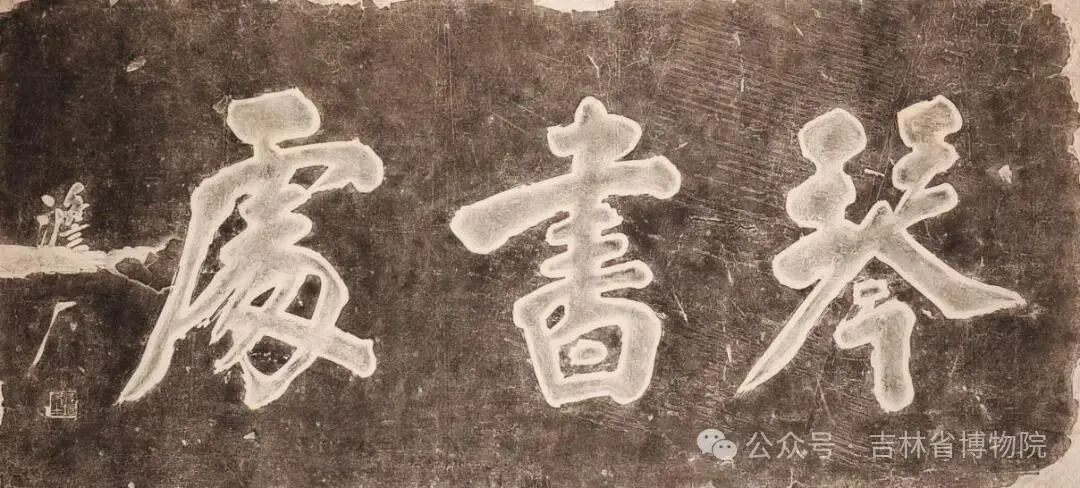 琴書處
厂
公众号 · 吉林省博物院